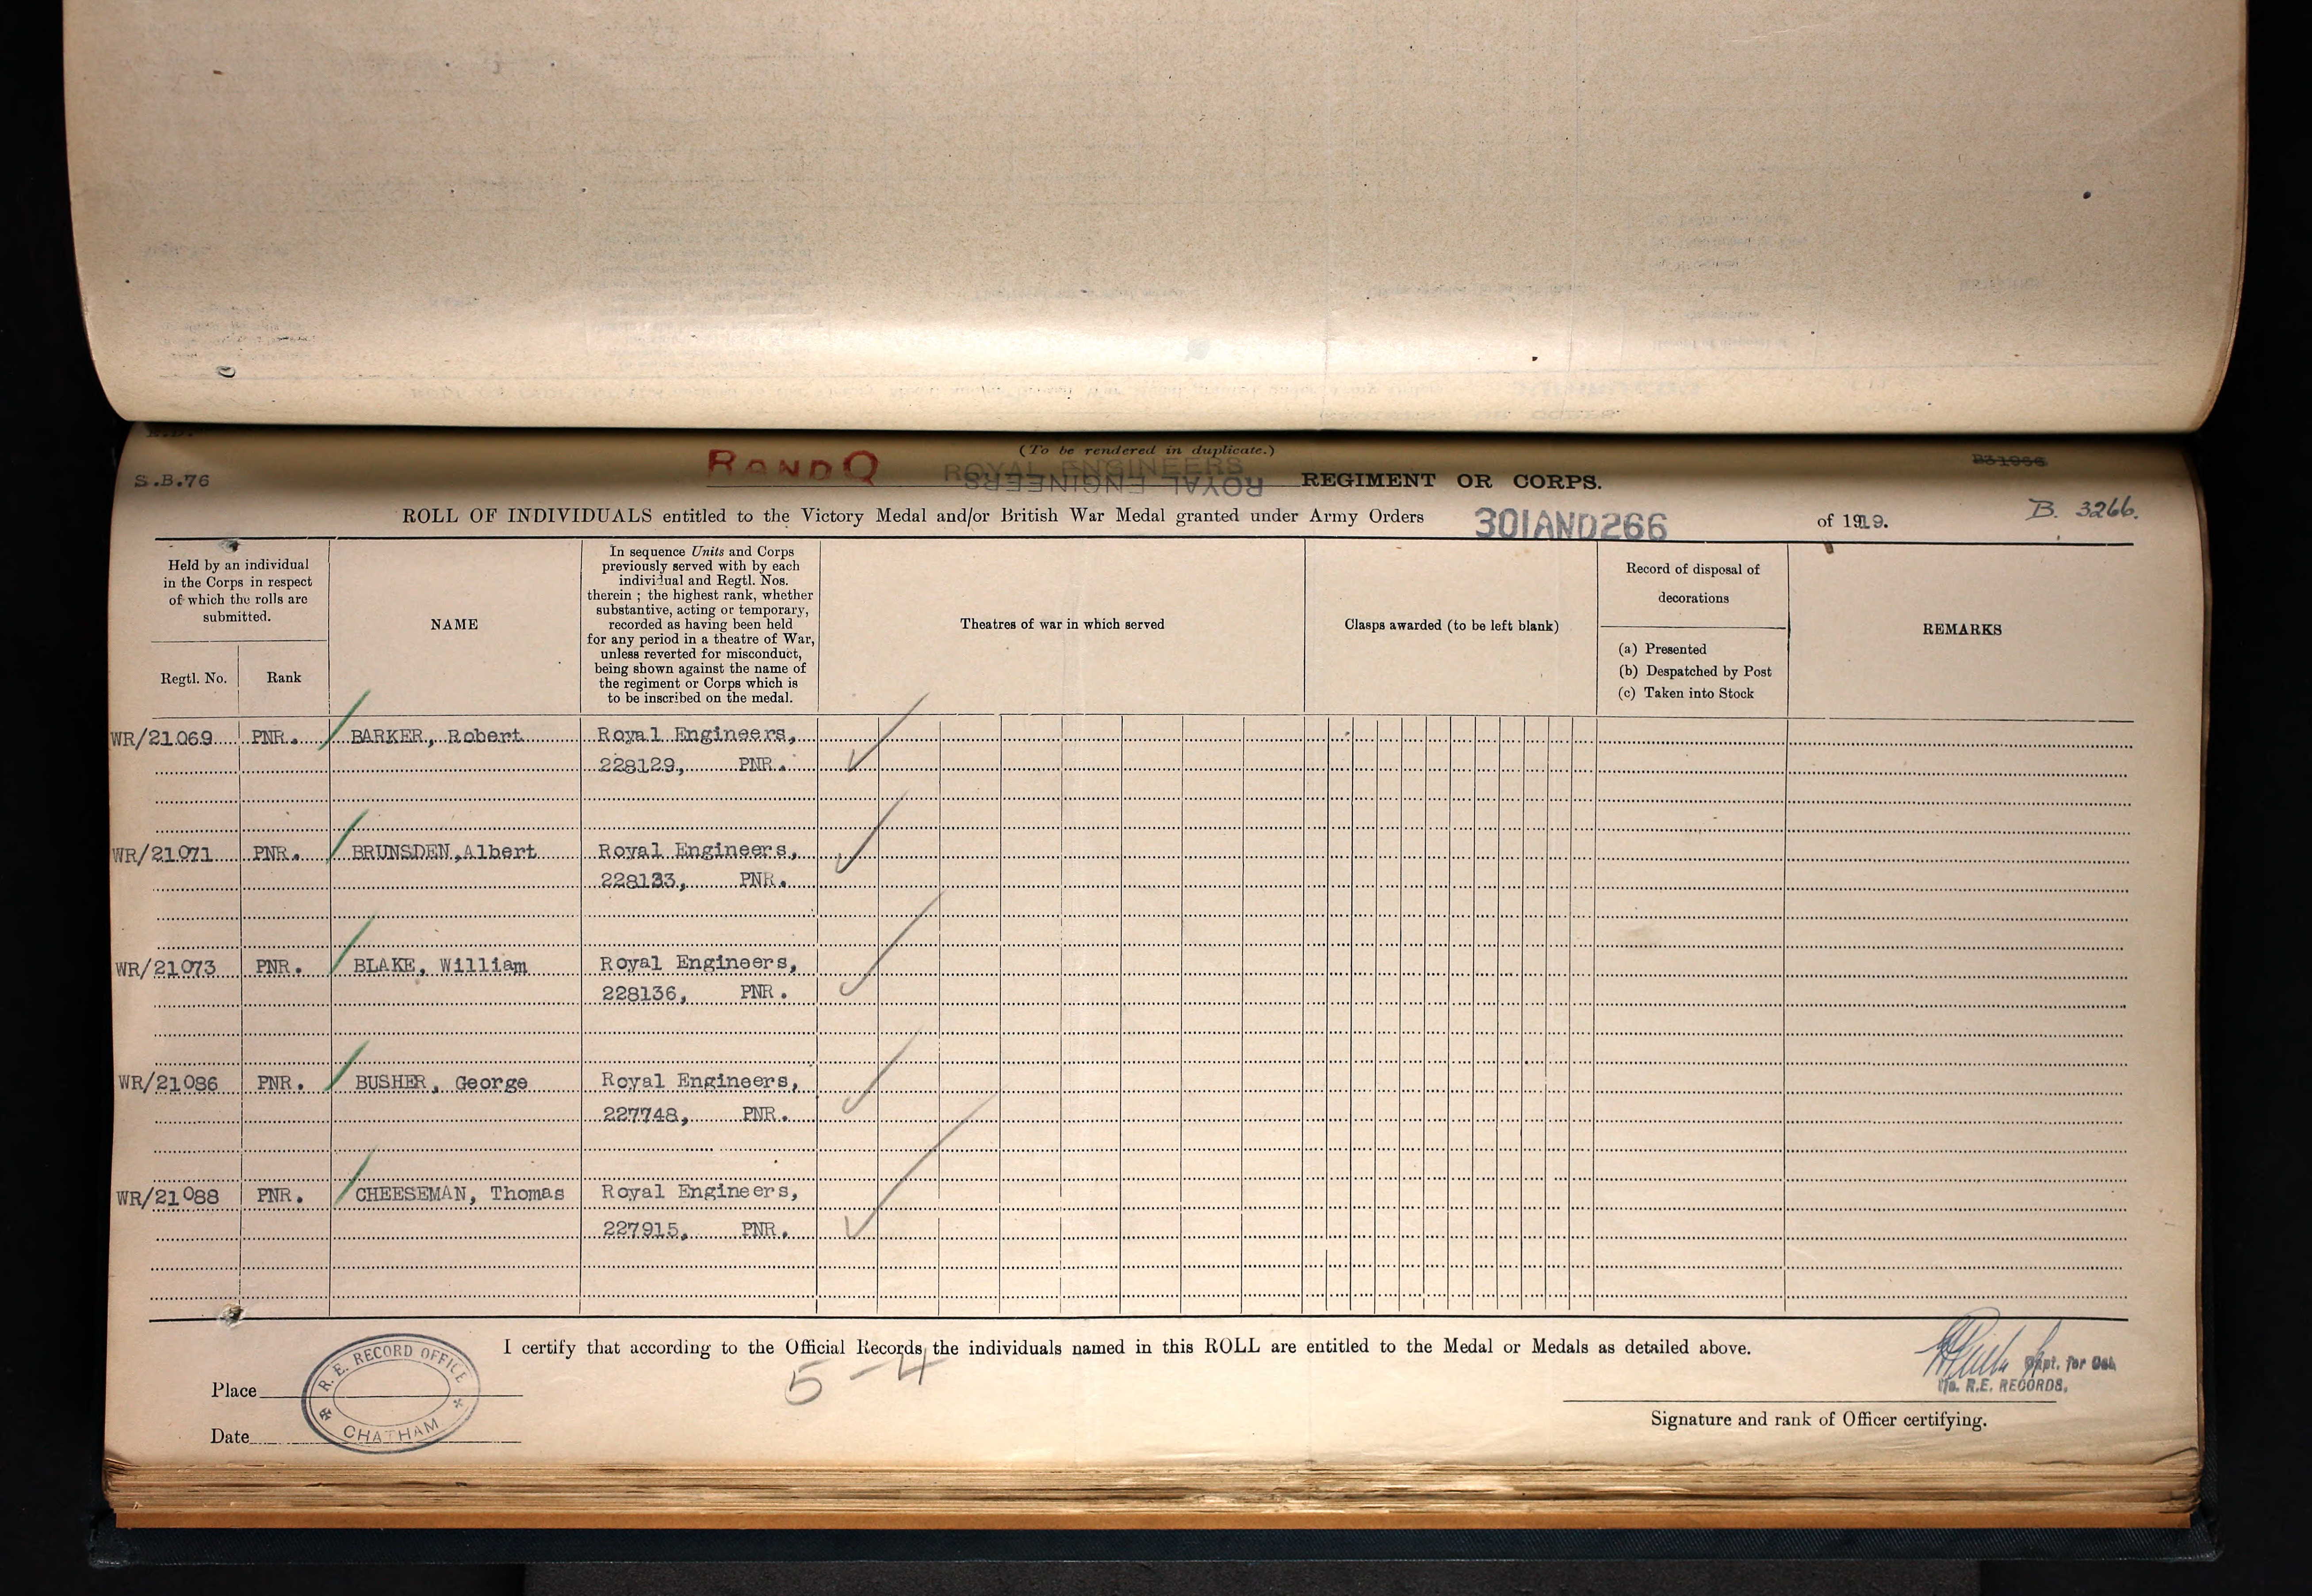 (To be rendered in duplicate.)
B31966
S.B.76
RANDQ
ROYAL ENGINEERS
ROYAL ENGINEERS
REGIMENT OR CORPS.
ROLL OF INDIVIDUALS entitled to the Victory Medal and/or British War Medal granted under Army Orders 301AND266 of 1919.
B. 3266.
Held by an individual
in the Corps in respect
of which the rolls are
submitted.
Regtl. No.
Rank
NAME
In sequence Units and Corps
previously served with by each
individual and Regtl. Nos.
therein ; the highest rank, whether
substantive, acting or temporary,
recorded as having been held
for any period in a theatre of War,
unless reverted for misconduct,
being shown against the name of
the regiment or Corps which is
to be inscribed on the medal.
Theatres of war in which served
Clasps awarded (to be left blank)
Record of disposal of
decorations
(a) Presented
(b) Despatched by Post
(c) Taken into Stock
REMARKS
WR/21069 PNR. BARKER, Robert Royal Engineers,
228129, PNR.
WR/21071 PNR. BRUNSDEN, Albert Royal Engineers,
228133, PNR.
WR/21073 PNR. BLAKE, William Royal Engineers,
228136, PNR.
WR/21086 PNR. BUSHER, George Royal Engineers,
227748, PNR.
WR/21088 PNR. CHEESEMAN, Thomas Royal Engineers,
227915, PNR.
I certify that according to the Official Records the individuals named in this ROLL are entitled to the Medal or Medals as detailed above.
5-4
Place
R. E. RECORD OFFICE
CHATHAM
Date
Capt. for Col.
i/c. R.E. RECORDS.
Signature and rank of Officer certifying.